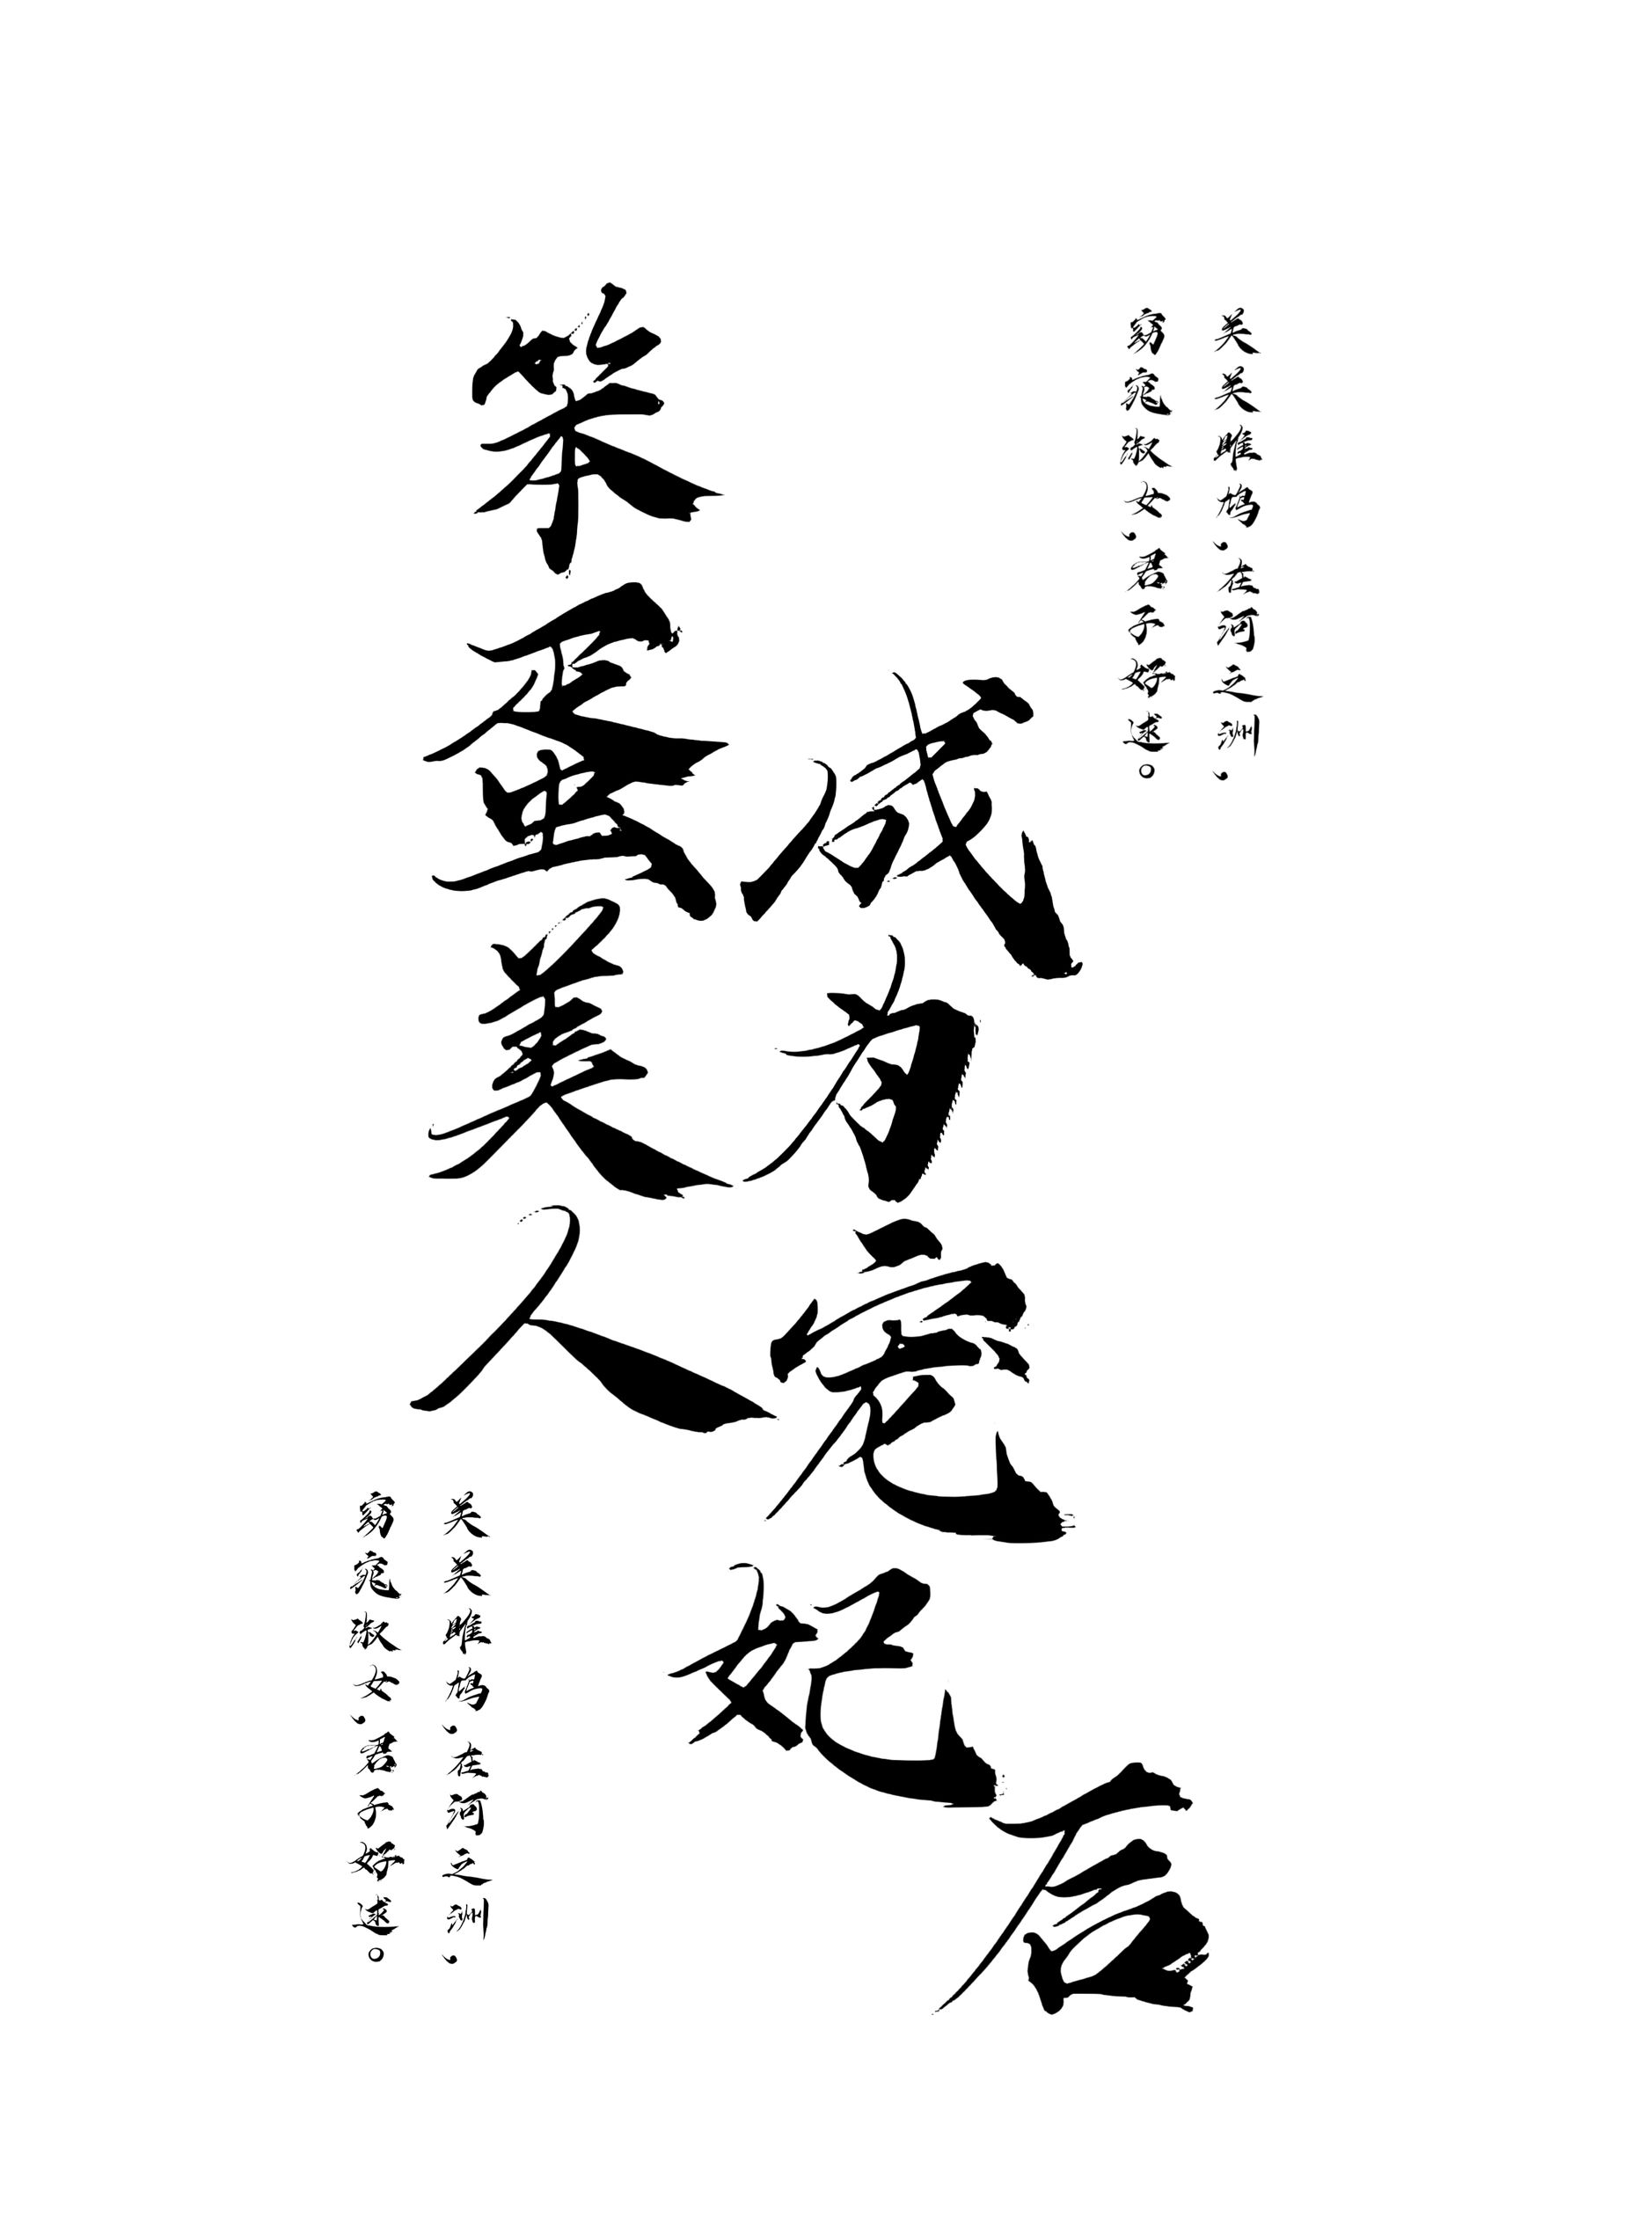 关关雎鸠,在河之洲,
窈窕淑女,君子好逑。
笨蛋美人
成为宠妃后
关关雎鸠,在河之洲,
窈窕淑女,君子好逑。